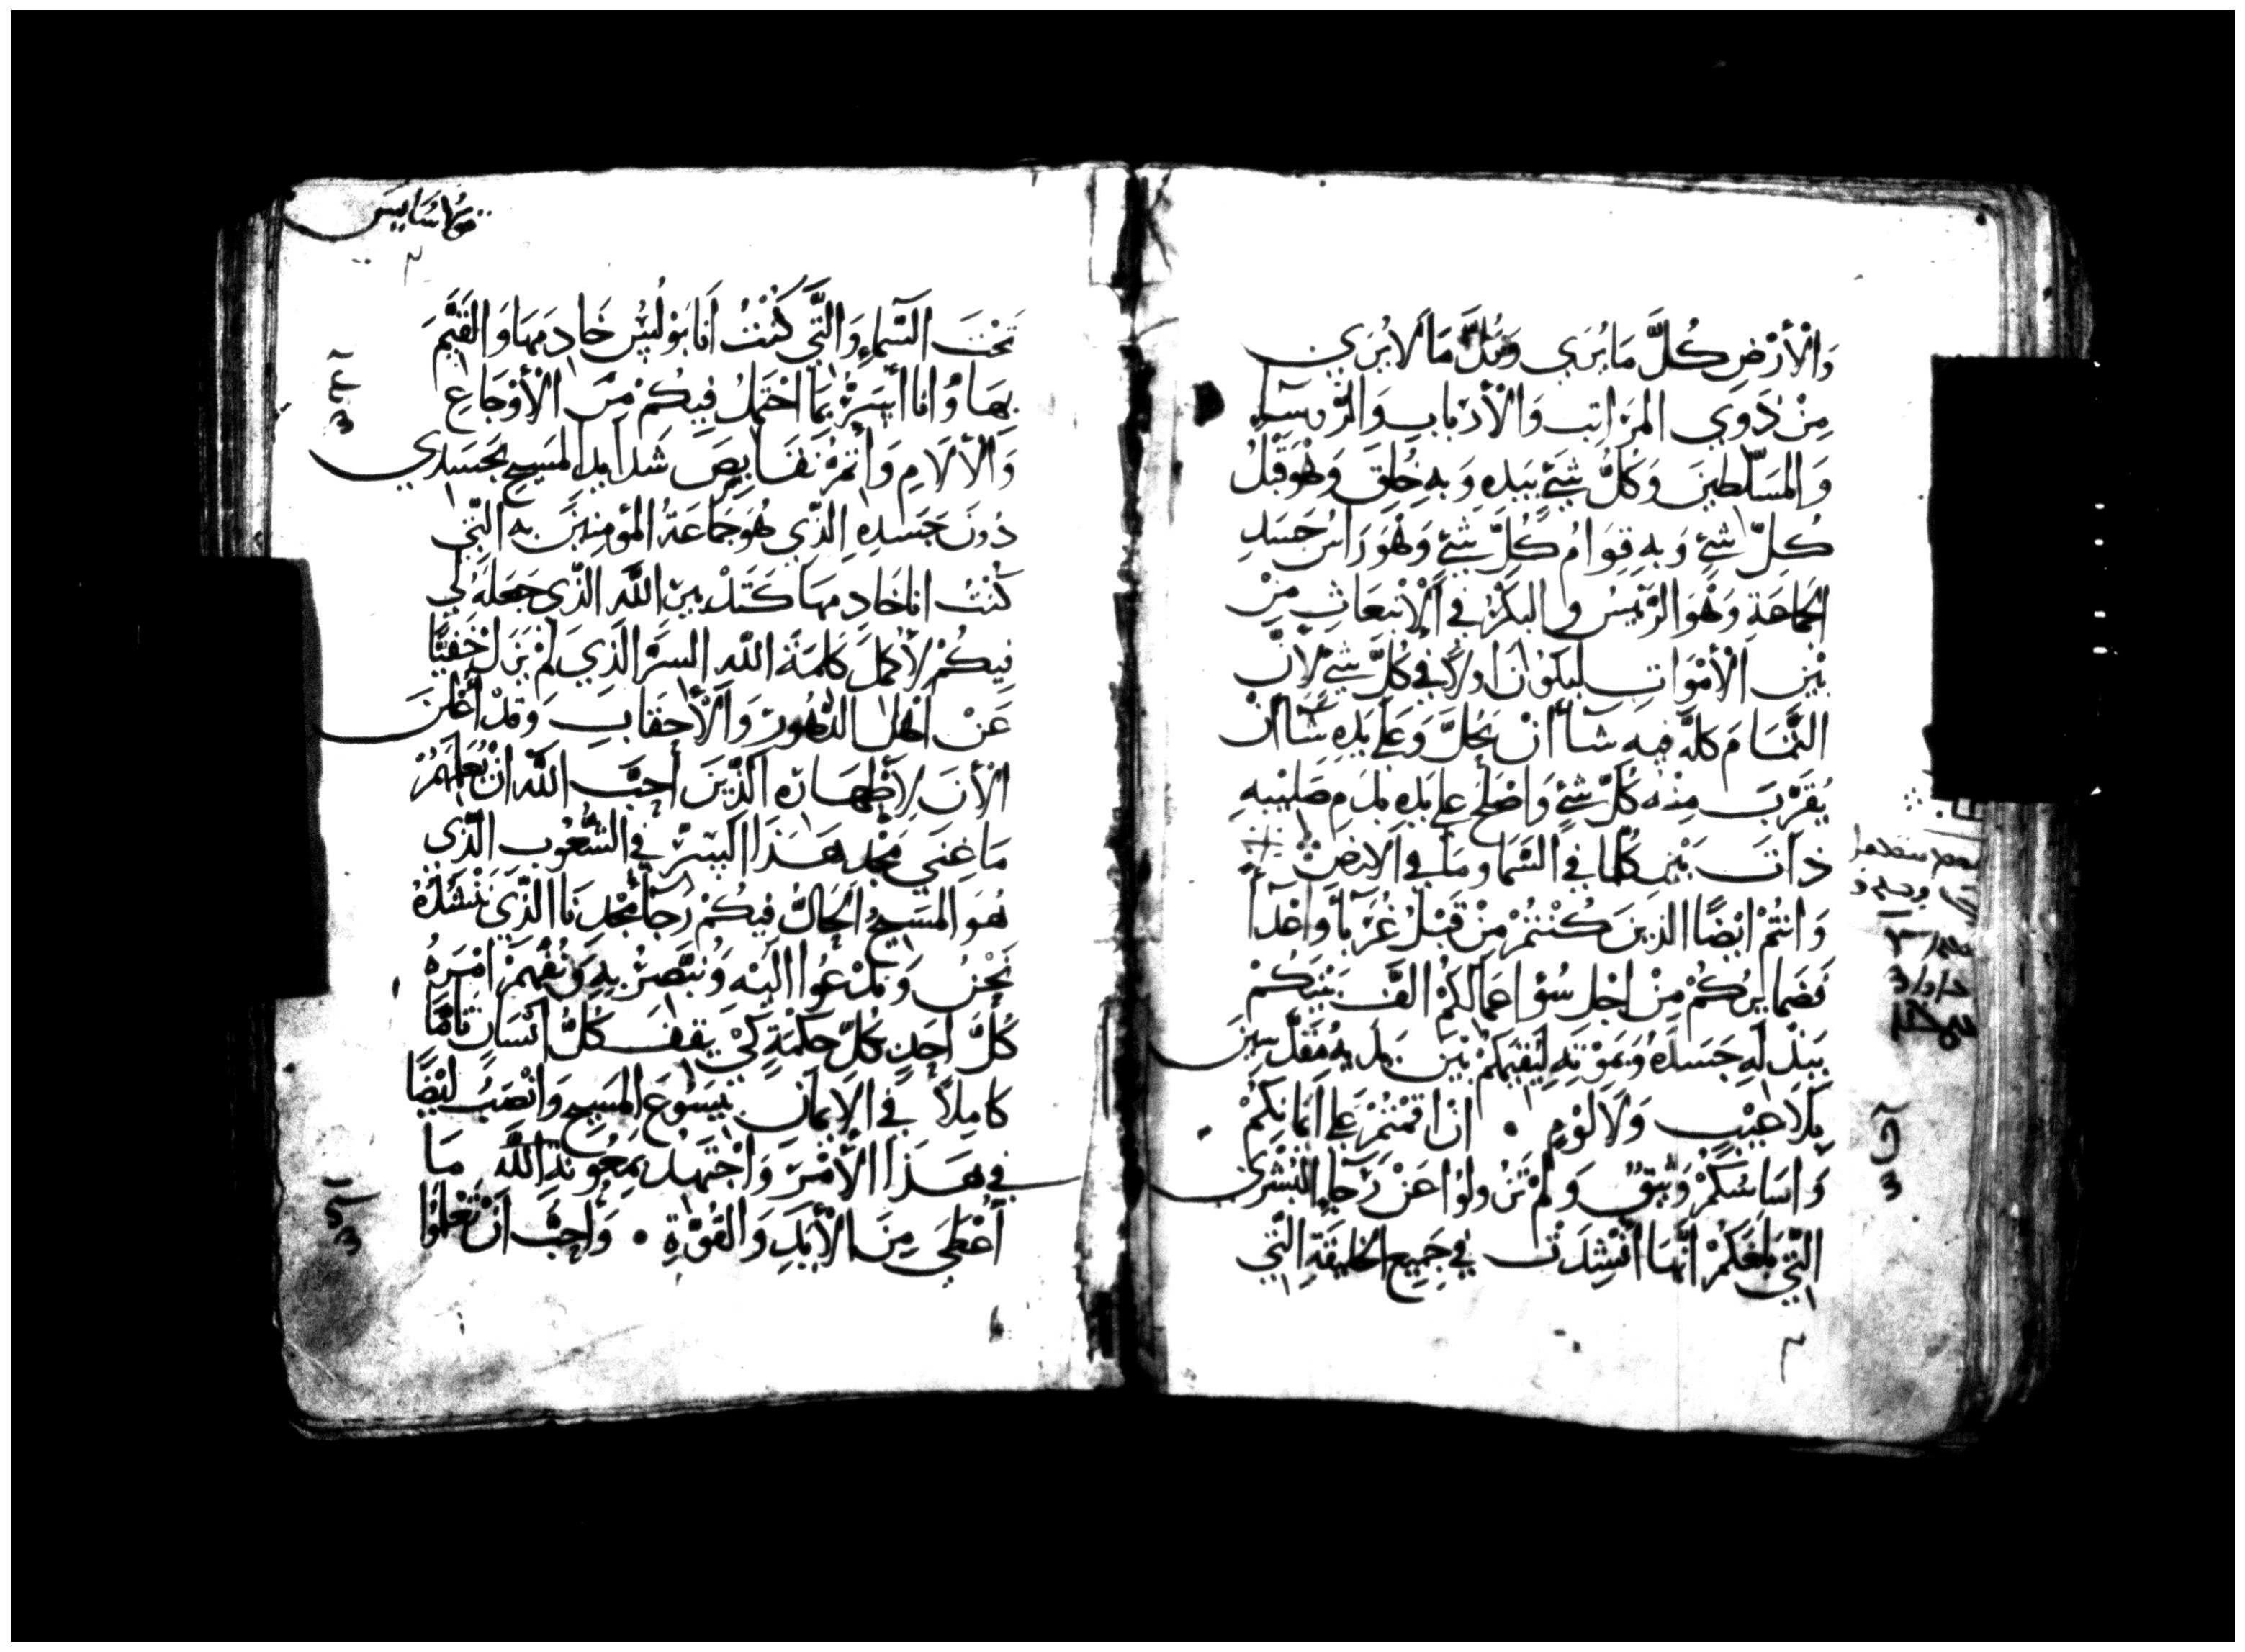 وَالْأَرْضِ كُلَّ مَا يُرَي وَكُلَّ مَا لَا يُرَي
مِنْ ذَوِي المَرَاتِب وَالْأَرْبَابِ وَالرُّؤسَآءِ
وَالمُسَلّطِينَ وَكُلُّ شَيْءٍ بِيَدِه وَبِهِ خُلِقَ وَهُوَ قَبْلُ
كُلّ شَيْءٍ وَبِهِ قِوَامُ كُلّ شَيْءٍ وَهُوَ رَاس جَسَدِ
الجَمَاعَةِ وَهُوَ الرّئيسُ والبِكْرُ فِي الْإِنْبِعَاثِ مِنْ
بَيْنِ الْأَمْوَاتِ لِيَكُوْنَ اوَلًا فِي كُلِّ شَيْءٍ لأنَّ
التَّمَامَ كلّهُ فِيهِ شَآءَ أنْ يَحُلَّ وَعَلي يَدِهِ شَآءَ انْ
يُقَرِّبَ مِنْهُ كُلَّ شَيْءٍ وَاصْلَحَ علي يَدِهِ بِدَمِ صَلِيْبِهِ
ذاتَ بَيْنِ كُلّمَا في السّمَا ومَا في الارض
وَانتُمْ ايْضًا الذينَ كُنْتُمْ مِنْ قَبْلُ غُرَبَآ وَاعْدَآ
فَضَمايرُكُمْ مِنْ اجْلِ سُوْاعمَالكُمْ الَّف بَيْنَكُمْ
بِبَذْلِهِ جَسَدَهُ وَبِمَوْتِهِ لِيُقِيمَكُمْ بَيْنَ يَدَيْهِ مُقَدَّسِينَ
بِلَا عَيْبٍ وَلَا لَوْمٍ • ان اقمْتُمْ عَلي ايمَانِكُمْ
وَاسَاسُكُمْ وَثِيْقٌ وَلَمْ تَزُولُوْا عَنْ رَجَاءِ البُشْرَي
الَّتِي بَلَغَكُمْ انَّهَا انْتَشَرَتْ فِي جَمِيعِ الخَلِيقَةِ الَّتِي
تَحْتَ السَّمَاءِ وَالَّتِي كُنْتُ اَنَا بَوْلُسُ خَادِمَهَا وَالْقَيِّمَ
بِهَا وَانَا اُسَرُّ بِمَا احْتَمِلُ فِيكُمْ مِنَ الْأَوْجَاعِ
وَالْأَلَامِ وَأُتِمُّ نَقَايِصَ شَدَايِدِ المَسِيحِ بِجَسَدِي
دُوْنَ جَسَدِهِ الَّذِي هُوَ جَمَاعَةُ المُؤْمِنِينَ بِهِ الَّتِي
كُنْتُ انا خَادِمهَا كَتَدْبِيرِ اللَّه الَّذِي جَعَلَهُ لِي
فِيكُمْ لِأُكْمِلَ كَلِمَةَ اللَّهِ السِّرَّ الَّذِي لَمْ يَزَلْ خَفِيًّا
عَنْ اهْلِ الدُّهُورِ وَالْأَحْقَابِ وَقَدْ أُعْلِنَ
الْأنَ لأطْهَارِهِ الَّذِينَ أَحَبَّ اللَّهُ انْ يُعَلِّمَهُمْ
مَا غِنَي مَجْدِ هَذَا السِّرِّ فِي الشُّعُوبِ الَّذِي
هُوَ المَسِيحُ الحَالُّ فِيكُمْ رَجَآءُ مَجْدِنَا الَّذِي نَنْشُدُهُ
نَحْنُ وَنَدْعُوا الَيْهِ وَنُبَصِّرُ بِهِ وَنُفْهِمُ امْرَهُ
كُلَّ احَدٍ بكُلِّ حِكْمَةٍ كَيْ يَقِفَ كُلُّ انْسَانٍ تَامًّا
كَامِلًا في الإيمَان بِيَسُوْعَ المَسِيحِ وَانْصَبُ ايْضًا
فِي هَذَا الْأَمْرِ وَاجْتَهِدُ بِمَعُوْنَةِ اللَّه مَا
أُعْطِيَ مِنَ الْأَيْدِ وَالْقُوَّةِ • وَأُحِبُّ انْ تَعْلَمُوا